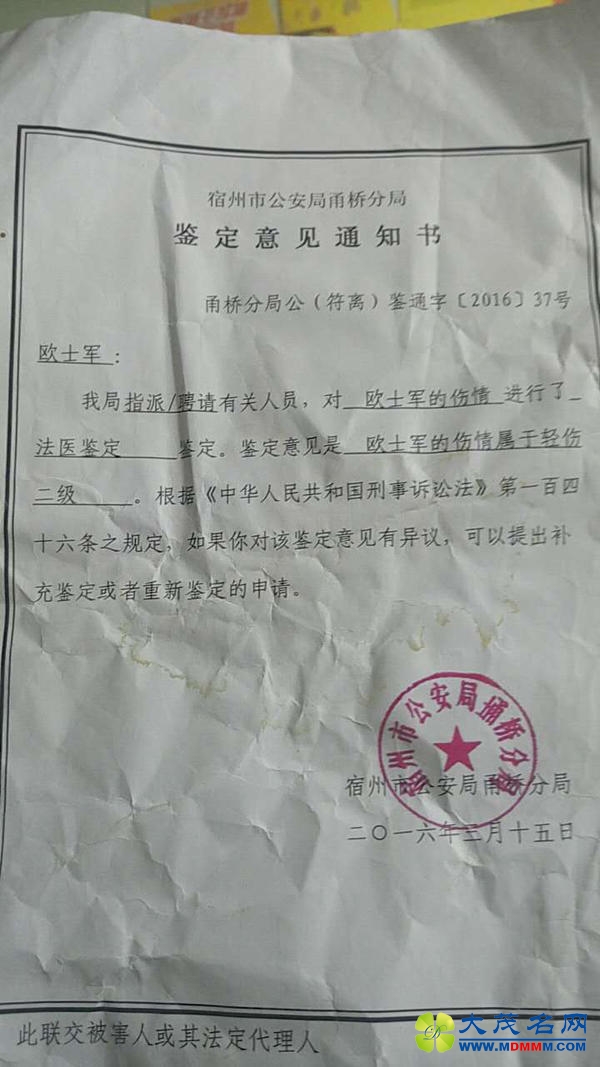 宿州市公安局甬桥分局
鉴定意见通知书
甬桥分局公(符离)鉴通字〔2016〕37号
欧士军:
我局指派/聘请有关人员,对 欧士军的伤情 进行了
法医鉴定 鉴定。鉴定意见是 欧士军的伤情属于轻伤
二级 。根据《中华人民共和国刑事诉讼法》第一百四
十六条之规定,如果你对该鉴定意见有异议,可以提出补
充鉴定或者重新鉴定的申请。
宿州市公安局埇桥分局
宿州市公安局甬桥分局
二〇一六年三月十五日
此联交被害人或其法定代理人
大茂名网
WWW.MDMMM.COM